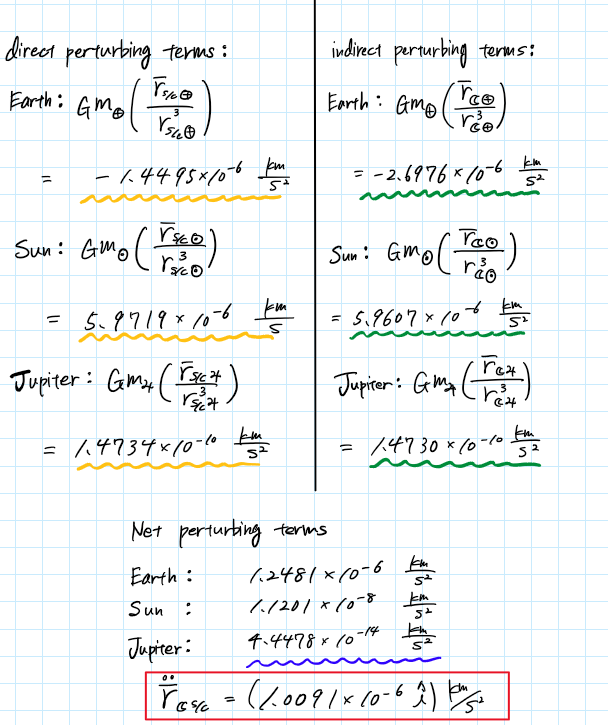 direct perturbing terms:
Earth: Gm⊕ ( r̄s/c⊕ / r³s/c⊕ )
= -1.4495×10⁻⁶ km/s²
Sun: Gm☉ ( r̄s/c☉ / r³s/c☉ )
= 5.9719×10⁻⁶ km/s
Jupiter: Gm♃ ( r̄s/c♃ / r³s/c♃ )
= 1.4734×10⁻¹⁰ km/s²
indirect perturbing terms:
Earth: Gm⊕ ( r̄☾⊕ / r³☾⊕ )
= -2.6976×10⁻⁶ km/s²
Sun: Gm☉ ( r̄☾☉ / r³☾☉ )
= 5.9607×10⁻⁶ km/s²
Jupiter: Gm♃ ( r̄☾♃ / r³☾♃ )
= 1.4730×10⁻¹⁰ km/s²
Net perturbing terms
Earth: 1.2481×10⁻⁶ km/s²
Sun: 1.1201×10⁻⁸ km/s²
Jupiter: 4.4478×10⁻¹⁴ km/s²
r̄̈☾s/c = (1.0091×10⁻⁶ î) km/s²